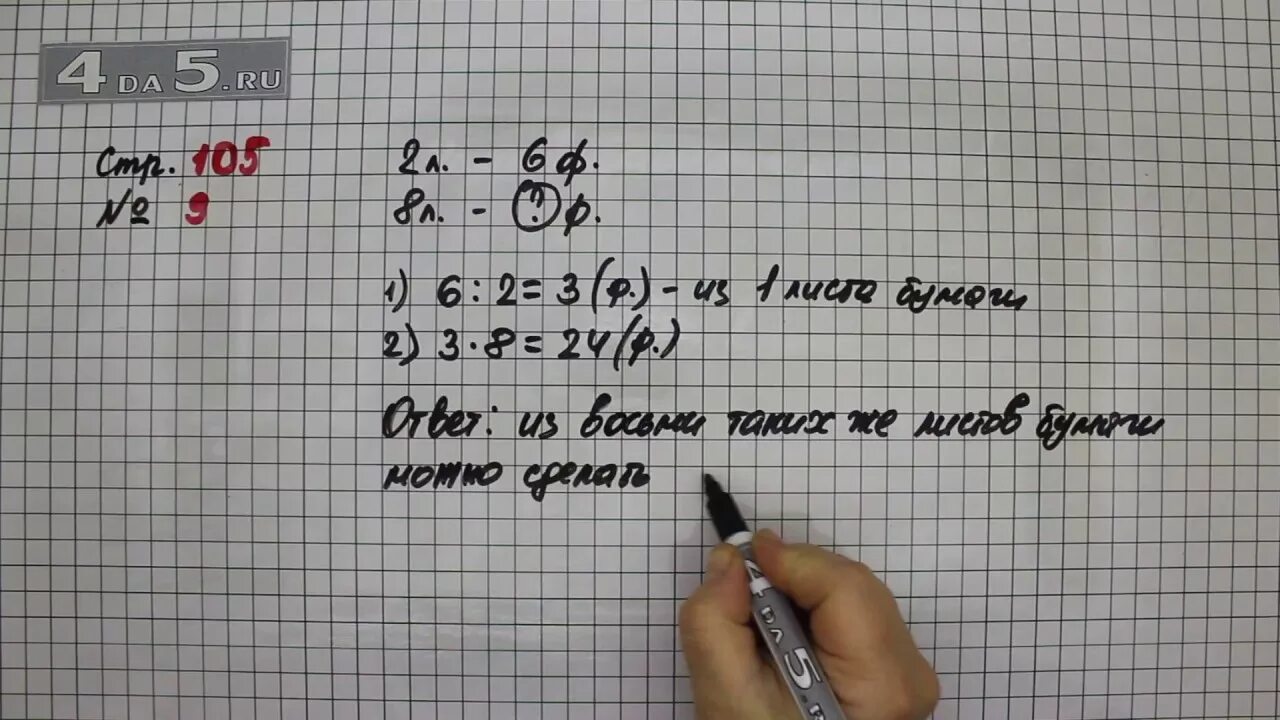 4DA5.RU
Стр. 105
№ 9
2л. - 6 ф.
8л. - ? ф.
1) 6 : 2 = 3 (ф.) - из 1 листа бумаги
2) 3 · 8 = 24 (ф.)
Ответ: из восьми таких же листов бумаги
можно сделать
4DA5.R